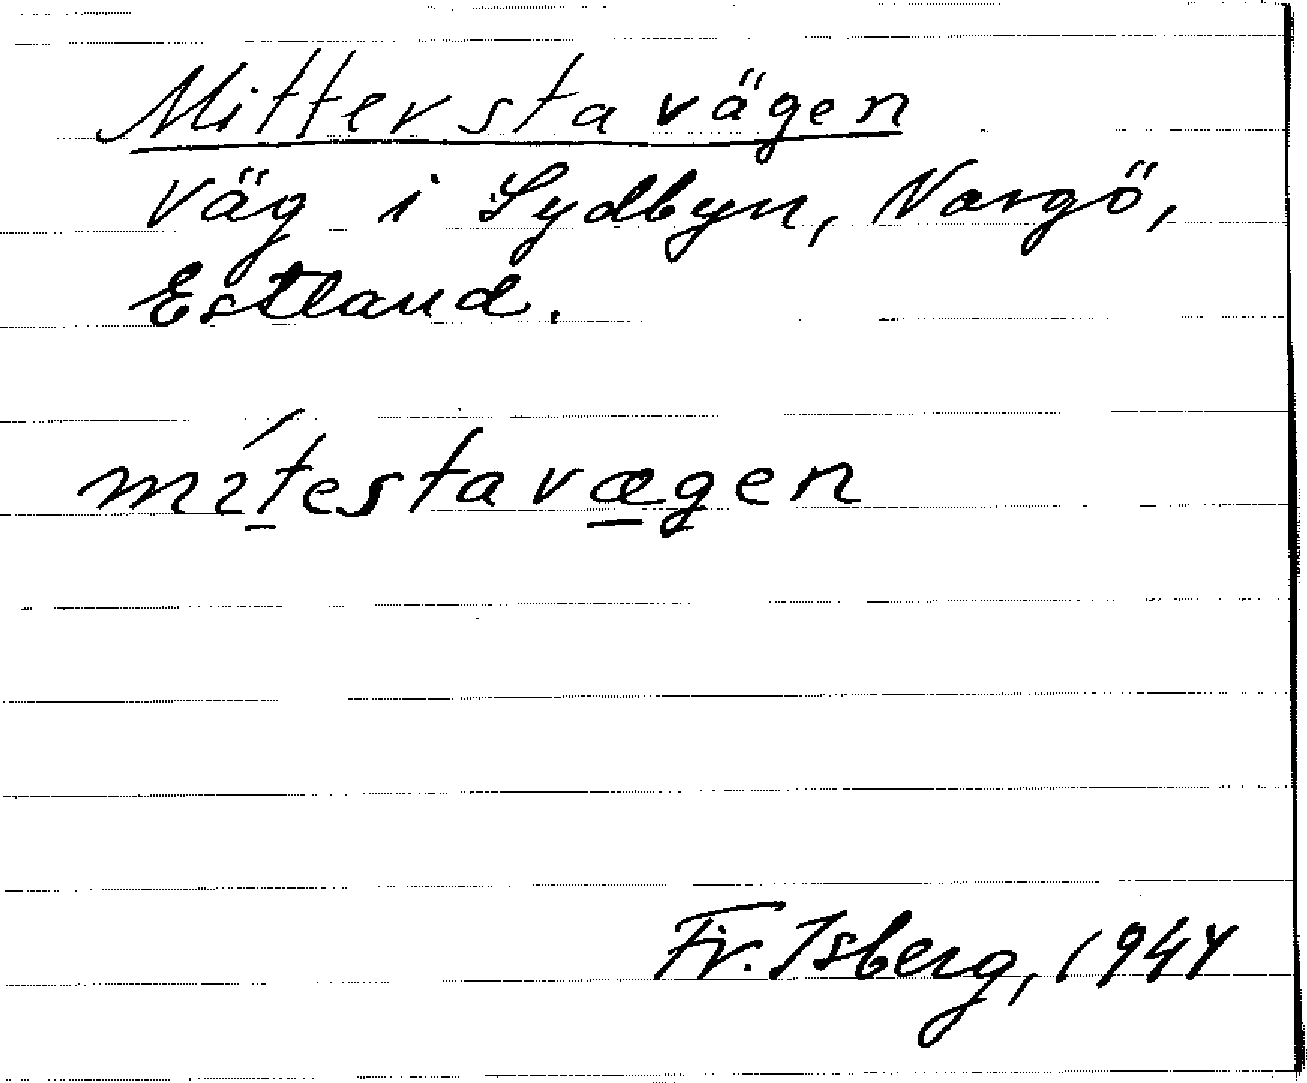 Mittersta vägen
Väg i Sydbyn, Nargö,
Estland.
mítestavægen
Fr. Isberg, 1944